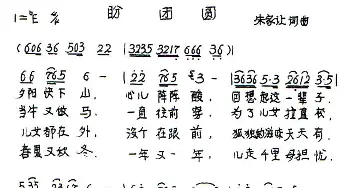 盼团圆
朱家让词曲
(606 36 503 22 |3235 3217 666 36)|
66 765 6 - |22 765 3 - |3636 5·3 2612 3·5|
夕阳快下山 心儿阵阵酸, 回想您这一辈子
当牛又做马. 一直往前 为了儿女拉直校
儿女都在外, 没个在跟前, 孤独的滋味天天有
春夏又秋冬 一年又一年, 儿走千里母担忧